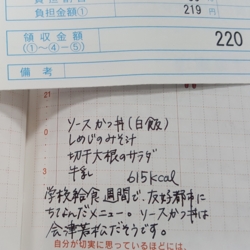 負担金額①
219 円
領収金額
(①~④-⑤)
220
備考
ソースかつ丼(白飯)
しめじのみそ汁
切干大根のサラダ
牛乳 615kcal
学校給食週間で、友好都市に
ちなんだメニュー。ソースかつ丼は
会津若松だそうです。
自分が切実に思っているほどには、